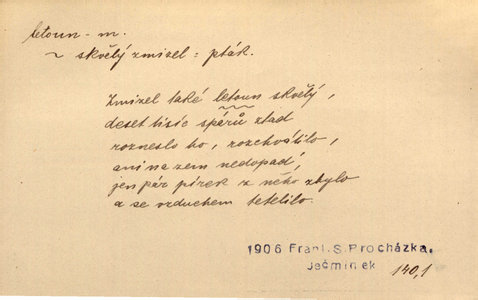 letoun - m.
~ skvělý zmizel : pták.
Zmizel také letoun skvělý,
deset tisíc spárů ztad
rozneslo ho, rozchvátilo,
ani na zem nedopad,
jen pár pírek z něho zbylo
a se vzduchem tetelilo.
1906 Frant. S. Procházka.
Ječmínek 140,1